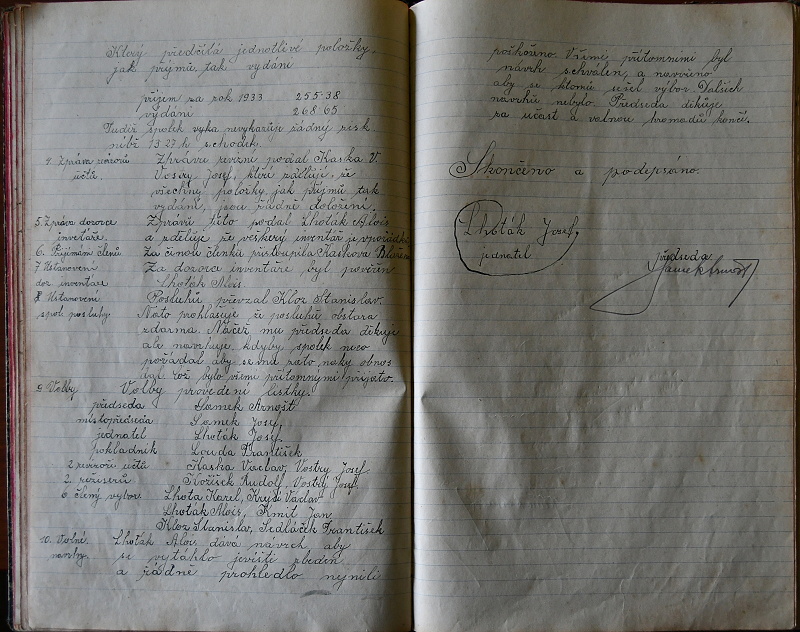 Který předčítá jednotlivé položky
jak příjmů, tak vydání
příjem za rok 1933 255·38
vydání 268·65
Tudíž spolek vyka nevykazuje žádný zisk
nibž 13·27 h schodek.
4. Zpráva revisorů Zprávu revisní podal Kaska V.
účtů. Vostrý Josef, kteří sdělují, že
všechny položky jak příjmů tak
vydání, jsou řádně doloženi.
5. Zpráva dozorce Zprávu tito podal Lhoták Alois
inventáře. a sděluje že veškerý inventář je vpořádku
6. Přijímání členů Za činnou členku přistoupila Kaskova
7 Ustanovení Za dozorce inventáře byl potvrzen
doz. inventáře Lhoták Alois.
8 Ustanovení Posluhu převzal Kloz Stanislav.
spol. posluhy. Nato prohlašuje že posluhu obstará
zdarma. Načež mu předseda děkuje
ale navrhuje kdyby spolek něco
požádal aby se mu zato naky obnos
což bylo všemi přítomnými přijato.
9. Volby Volby provedeni lístky.
předseda Samek Arnošt
místopředseda Samek Josef
jednatel Lhoták Josef
pokladník Louda František
2 revisoři účtů Kaska Vaclav, Vostrý Josef
2. režiserů Kožišek Rudolf, Vostrý Josef
6 členy výbor Lhota Karel, Vaclav
Lhotak Alois, Kmit Jan
Kloz Stanislav, Sedláček František
10. Volné Lhoták Alois dává návrh aby
navrhy. se vytáhlo jeviště
a řádně prohledlo nejnili
poškozeno. Všemi přítomnimi byl
návrh schválen, a navrženo
aby se ktomu sešel výbor. Dalších
návrhů nebylo. Předseda děkuje
za účast a valnou hromadu končí.
Skončeno a podepsáno.
Lhoták Josef,
jednatel
předseda
Samek Arnošt